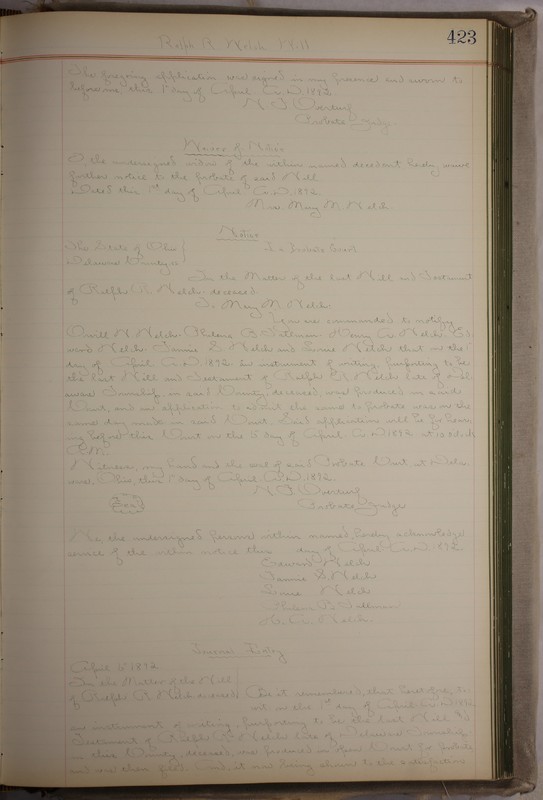 423
Ralph R. Welch Will
The foregoing application was signed in my presence and sworn to
before me, this 1st day of April A.D. 1892
Probate Judge.
Waiver of Notice
I, the undersigned widow of the within named decedent hereby waive
further notice of the probate of said Will
Dated this 1st day of April A.D. 1892
Mrs. Mary M. Welch
Notice
The State of Ohio
Delaware County, ss
In Probate Court
In the Matter of the last Will and Testament
of Ralph R. Welch deceased.
To Mary M. Welch
You are commanded to notify
Welch that on the 1
day of April A.D. 1892 an instrument of writing, purporting to be
the last Will and Testament of Ralph R. Welch late of Dela
ware Township, in said County, deceased, was produced in said
Court, and an application to admit the same to probate was on the
same day made in said Court. Said application will be for hear
ing before this Court on the 15 day of April A.D. 1892 at 10 o'clock
A.M.
Witness, my hand and the seal of said Probate Court at Dela
ware, Ohio, this 1st day of April A.D. 1892
Seal
Probate Judge
the undersigned persons within named, hereby acknowledge
service of the within notice this day of April A.D. 1892
Edward Welch
Fannie S. Welch
Welch
H. A. Welch.
April 15 1892
In the Matter of the Will
of Ralph R. Welch deceased
Be it remembered, that heretofore, to-
wit on the 1st day of April A.D. 1892
an instrument of writing, purporting to be the last Will and
Testament of Ralph R. Welch late of Delaware Township
in this County, deceased, was produced in open Court for probate
and was then filed. And, it now being shown to the satisfaction